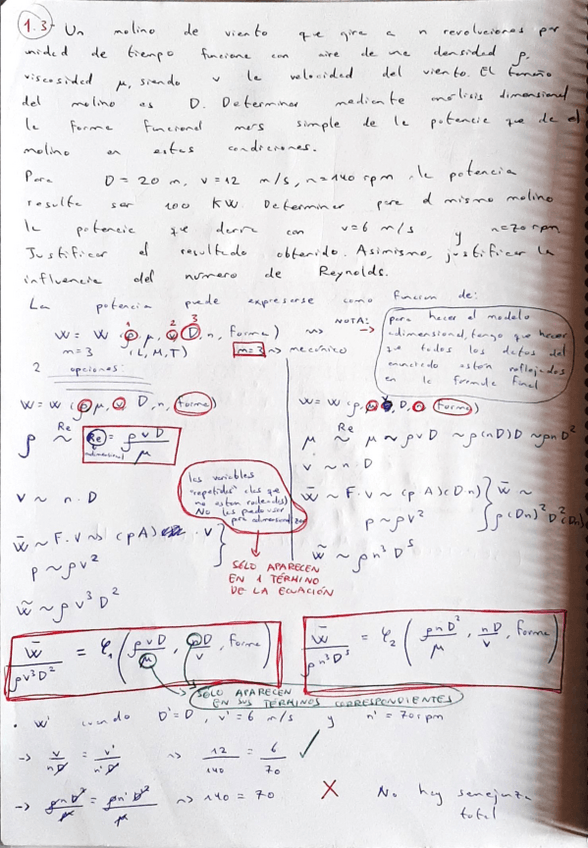 1.3 - Un molino de viento que gira a n revoluciones por
unidad de tiempo funciona con aire de una densidad ρ,
viscosidad μ, siendo v la velocidad del viento. El tamaño
del molino es D. Determinar mediante análisis dimensional
la forma funcional mas simple de la potencia que da el
molino en estas condiciones.
Para D = 20 m, v = 12 m/s, n = 140 rpm, la potencia
resulta ser 100 KW. Determinar para el mismo molino
la potencia que daría con v=6 m/s y n=70rpm
Justificar el resultado obtenido. Asimismo, justificar la
influencia del numero de Reynolds.
La potencia puede expresarse como función de:
1 2 3
W = W (ρ, μ, v, D, n, forma) ⇝
m=3 (L, M, T) m=3 ⇝ mecánico
NOTA: →
para hacer el modelo
adimensional, tengo que hacer
que todos los datos del
enunciado estén reflejados
en la formula final
2 opciones:
W = W (ρ, μ, v, D, n, forma)
ρ ~ Re Re = ρvD/μ
adimensional
v ~ n·D
W̄ ~ F·v ⇝ (pA) · v
p ~ ρv²
W̄ ~ ρv³D²
las variables
"repetidas" (las que
no estan rodeadas)
No las puedo usar
para adimensionalizar
SÓLO APARECEN
EN 1 TÉRMINO
DE LA ECUACIÓN
W = W (ρ, μ, v, D, n, forma)
μ ~ Re μ ~ ρvD ~ ρ(nD)D ~ ρnD²
v ~ n·D
W̄ ~ F·v ~ (pA)(Dn)
p ~ ρv²
W̄ ~ ρ(Dn)²D²(Dn)
W̄ ~ ρn³D⁵
W̄/ρv³D² = φ₁ (ρvD/μ, nD/v, forma)
W̄/ρn³D⁵ = φ₂ (ρnD²/μ, nD/v, forma)
SÓLO APARECEN
EN SUS TÉRMINOS CORRESPONDIENTES
· W' cuando D'=D, v'=6 m/s y n'=70rpm
→ v/nD = v'/n'D' ⇝ 12/140 = 6/70 ✓
→ ρnD²/μ = ρn'D'²/μ ⇝ 140 = 70 X No hay semejanza
total